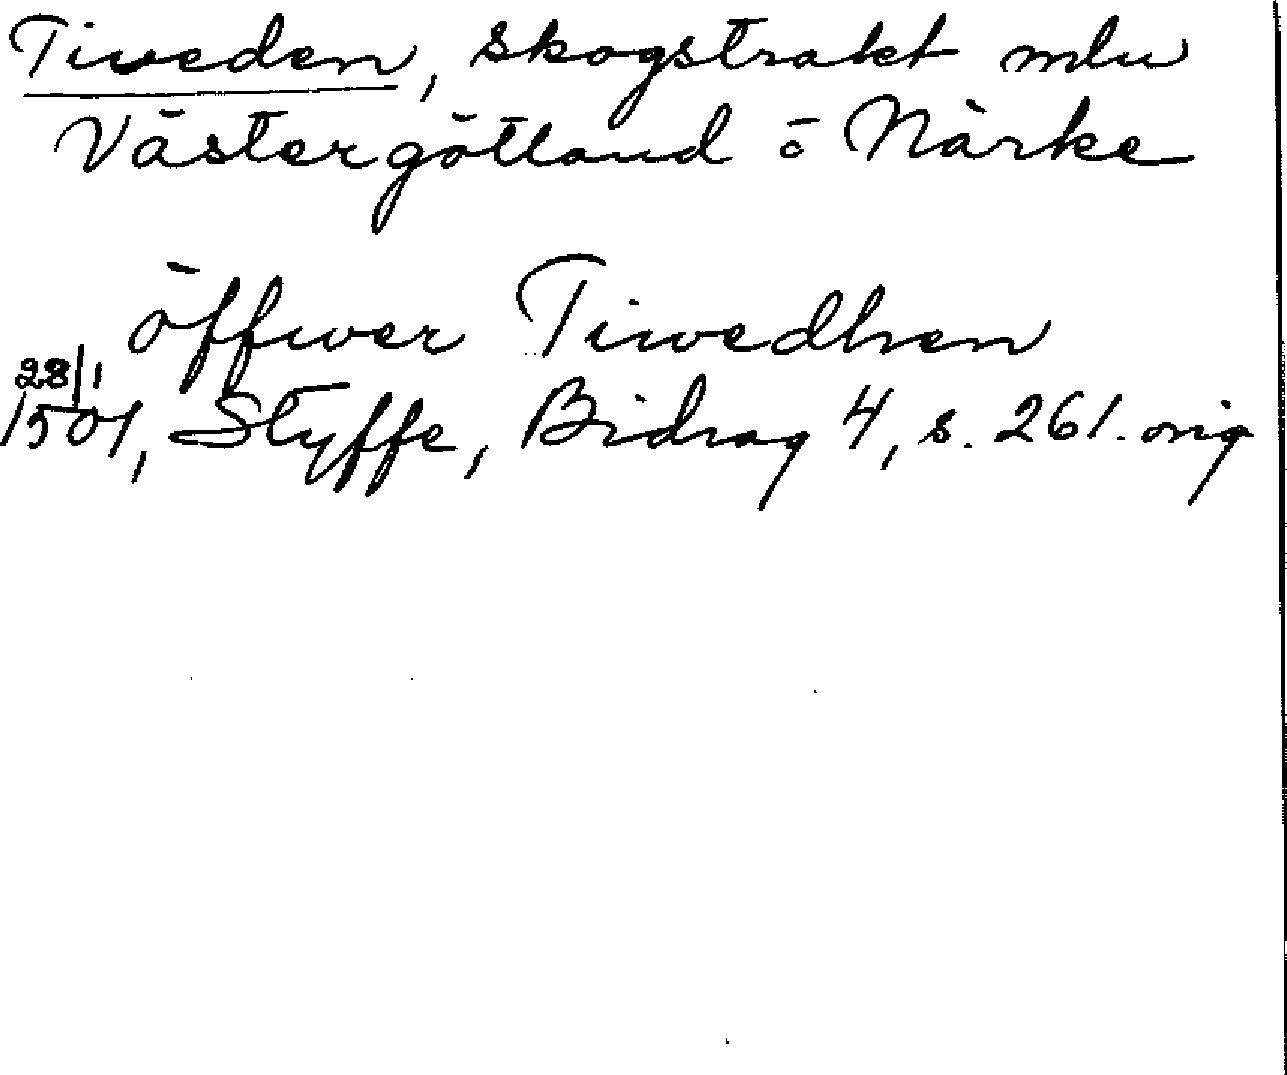 Tiveden, skogstrakt mlu
Västergötland o Närke
öffwer Tiwedhen
28/1
1501, Styffe, Bidrag 4, s. 261. orig